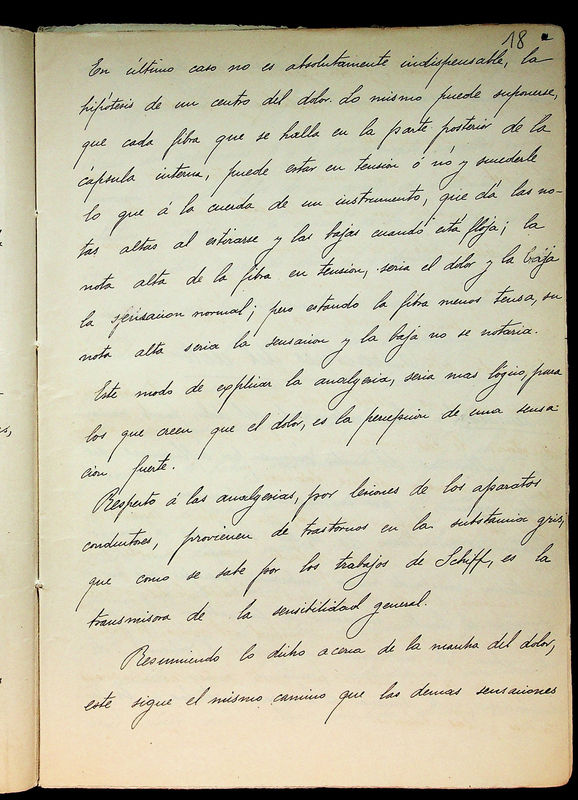 18
En último caso no es absolutamente indispensable, la
hipótesis de un centro del dolor. Lo mismo puede suponerse,
que cada fibra que se halla en la parte posterior de la
cápsula interna, puede estar en tension ó nó y sucederle
lo que á la cuerda de un instrumento, que dá las no-
tas altas al estirarse y las bajas cuando está floja; la
nota alta de la fibra en tension, seria el dolor y la baja
la sensacion normal; pero estando la fibra menos tensa, su
nota alta seria la sensacion y la baja no se notaria.
Este modo de explicar la analgesia, seria mas lógico, para
los que creen que el dolor, es la percepcion de una sensa
cion fuerte.
Respecto á las analgesias, por lesiones de los aparatos
conductores, provienen de trastornos en la substancia gris,
que como se sabe por los trabajos de Schiff, es la
transmisora de la sensibilidad general.
Resumiendo lo dicho acerca de la marcha del dolor,
este sigue el mismo camino que las demas sensaciones